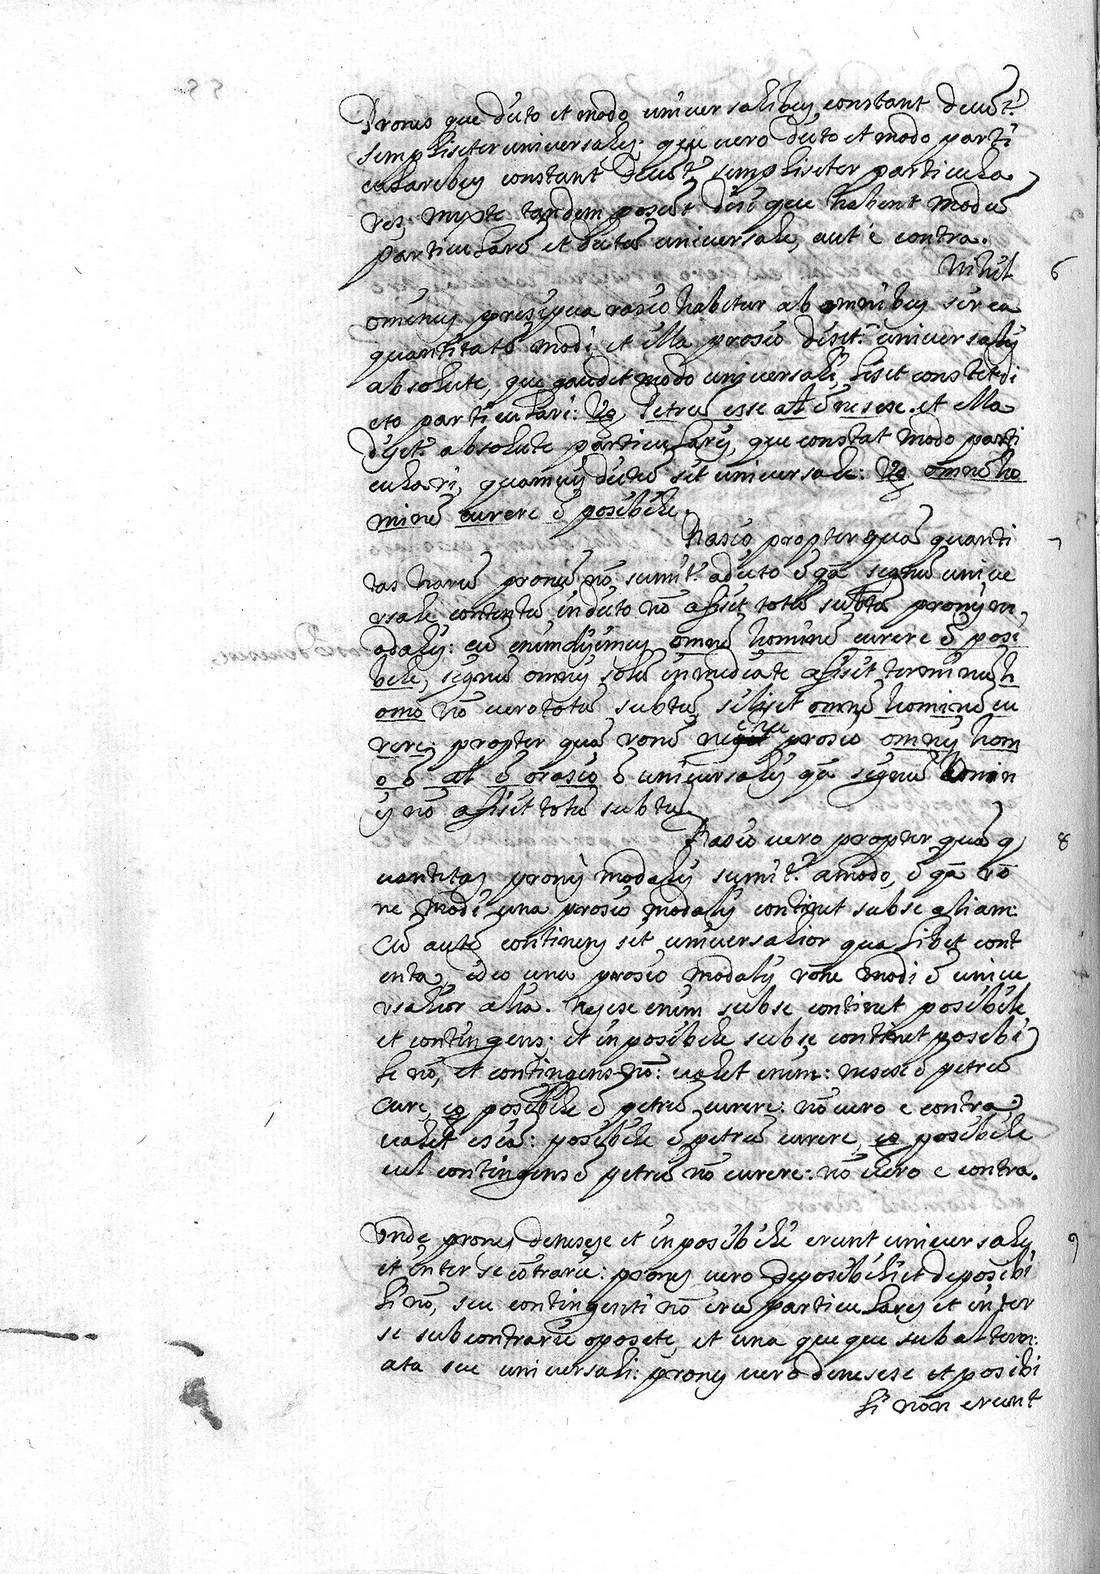 Prones que dicto et modo universalibus constant dicunt.r
simpliciter universales: que vero dicto et modo parti
cularibus constant dicunt.r simpliciter particula
res; mixte tandem posunt dici que habent modũ
particularẽ et dictũ universale, aut è contra.
Nihil 6
ominus presipua rasio habetur ab omnibus sirca
quantitatẽ modi, et illa prosio disit.r universalis
absolute, que gaudet modo universali, liset constet di
cto particulari: Vg Petrũ esse al ẽ nesese. et illa
disit.r absolute particularis, que constat modo parti
culari, quamvis dictũ sit universale: Vg omnẽ ho
minẽ curere ẽ posibile.
Rasio propter quã quanti 7
tas harũ pronũ nõ sumit.r a dicto ẽ qã signũ unive
rsale contentũ in dicto nõ afisit totũ subtũ pronis m
odalis: cũ enim disimus omnẽ hominẽ curere ẽ posi
bile, signũ omnis solũ inmediate afisit terminũ h
omo nõ vero totũ subtũ, siliset omnẽ hominẽ cu
rere; propter quã ronẽ prosio omnis hom
o ẽ al ẽ orasio ẽ universalis qã signũ omn
is nõ afisit totũ subtũ.
Rasio vero propter quã q 8
uantitas pronis modalis sumit.r a modo, ẽ qã rõ
ne modi una prosio modalis continet sub se aliam:
Cũ autẽ continens sit universalior qua libet cont
enta, ideo una prosio modalis rone modi ẽ unive
rsalior alia. Nesese enim sub se continet posibile
et contingens; et inposibile sub se continet posibi
le nõ, et contingens nõ: valet enim: nesese ẽ petrũ
cure, eo posibile ẽ petrũ curere: nõ vero e contra
valet esiã: posibile ẽ petrũ curere, eo posibile
vel contingens ẽ petrũ nõ curere: nõ vero e contra.
Unde prones de nesese et inposibile erunt universales, 9
et inter se cõtrarie: prones vero de posibili et de posibi
li nõ, seu contingenti nõ erũ particulares et inter
se subcontrarie oposite, et una queque subaltern
ata sue universali: prones vero de nesese et posibi
li non erunt